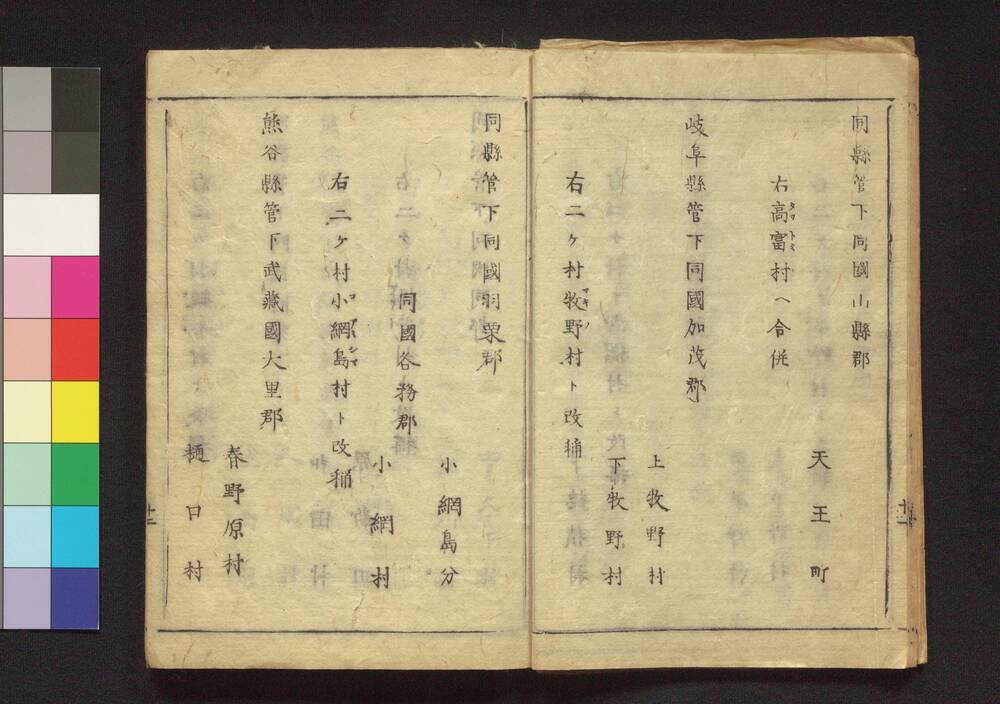 同縣管下同國山縣郡
天王町
右高富村ヘ合併
タカトミ
岐阜縣管下同國加茂郡
上牧野村
下牧野村
右二ケ村牧野村ト改稱
マキノ
同縣管下同國羽栗郡
小網島分
同國各務郡
小網村
右二ケ村小網島村ト改稱
コアミシマ
熊谷縣管下武藏國大里郡
春野原村
樋口村